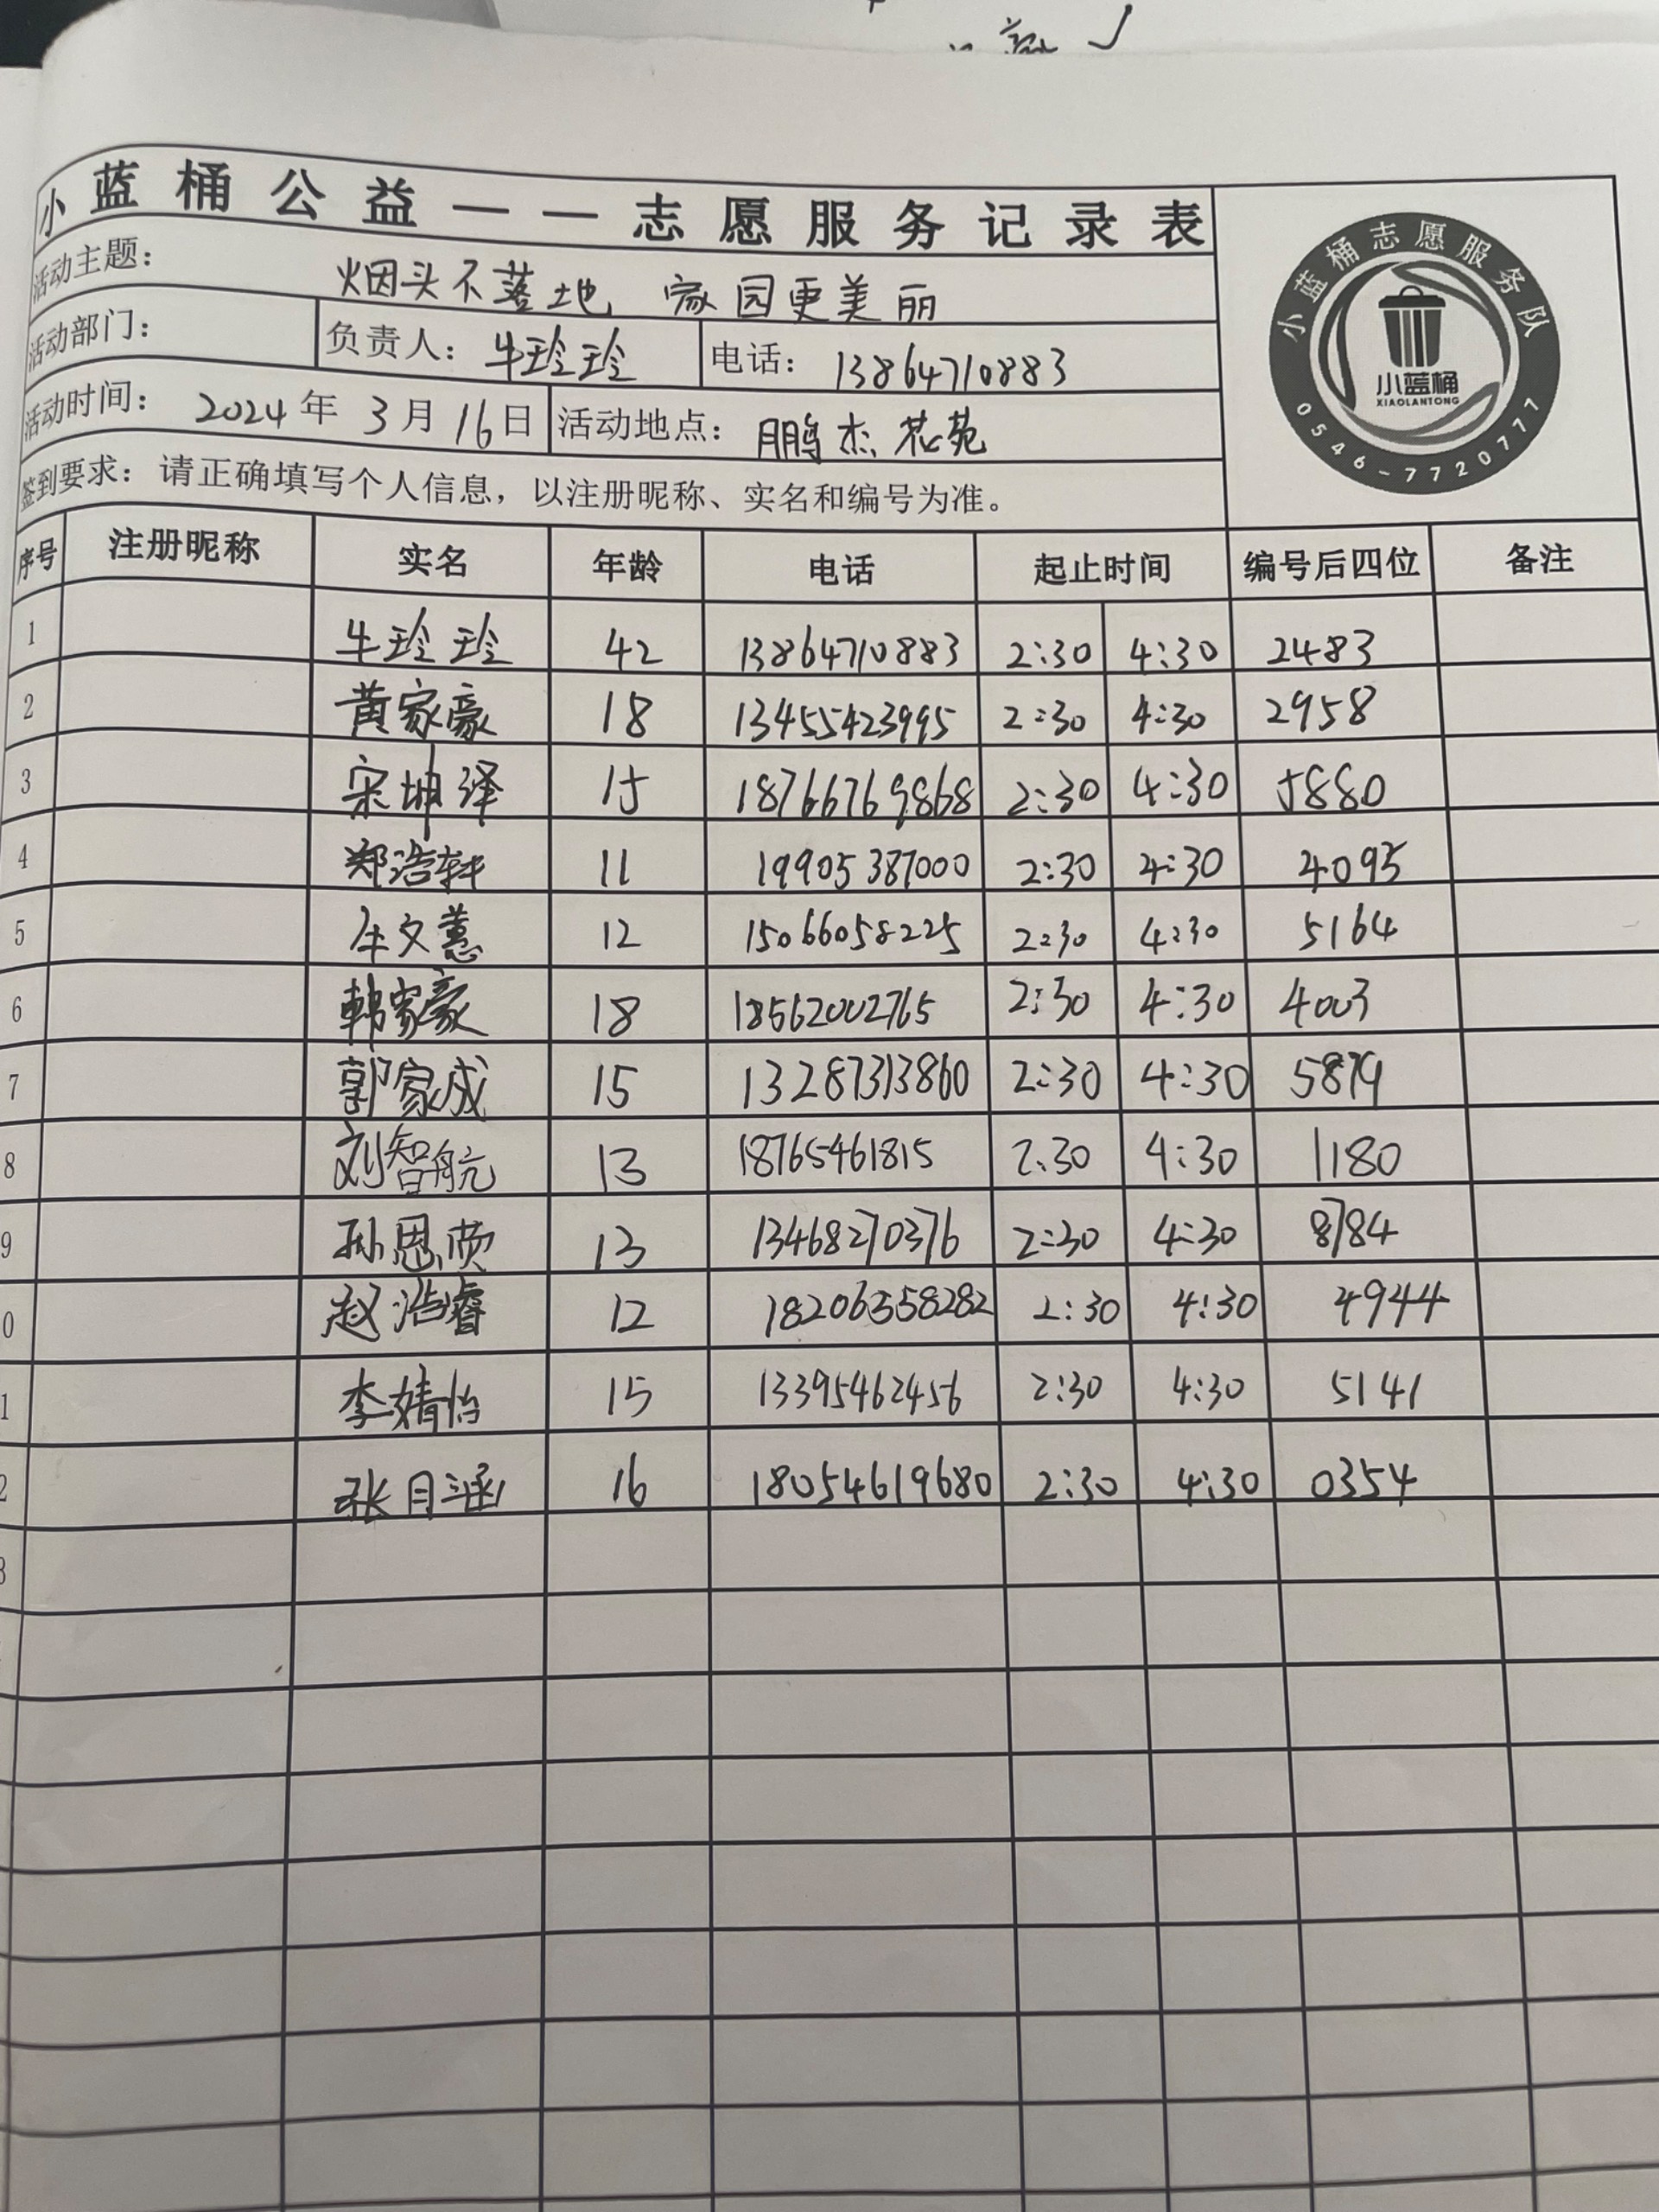 小蓝桶公益——志愿服务记录表
小蓝桶志愿服务队
小蓝桶
XIAOLANTONG
0546-7720777
活动主题： 烟头不落地 家园更美丽
活动部门： 负责人：牛玲玲 电话：13864710883
活动时间：2024年3月16日 活动地点：鹏杰花苑
签到要求：请正确填写个人信息，以注册昵称、实名和编号为准。
序号 注册昵称 实名 年龄 电话 起止时间 编号后四位 备注
1 牛玲玲 42 13864710883 2:30 4:30 2483
2 黄家豪 18 13455423995 2:30 4:30 2958
3 宋坤泽 15 18766769868 2:30 4:30 5880
4 郑浩轩 11 19905387000 2:30 4:30 4095
5 文蕙 12 15066058225 2:30 4:30 5164
6 韩家豪 18 18562002765 2:30 4:30 4003
7 郭家成 15 13287313860 2:30 4:30 5879
8 刘智航 13 18765461815 2:30 4:30 1180
9 孙恩 13 13468270376 2:30 4:30 8784
0 赵浩睿 12 18206358282 2:30 4:30 4944
1 李婧怡 15 13395462456 2:30 4:30 5141
2 张月涵 16 18054619680 2:30 4:30 0354
3